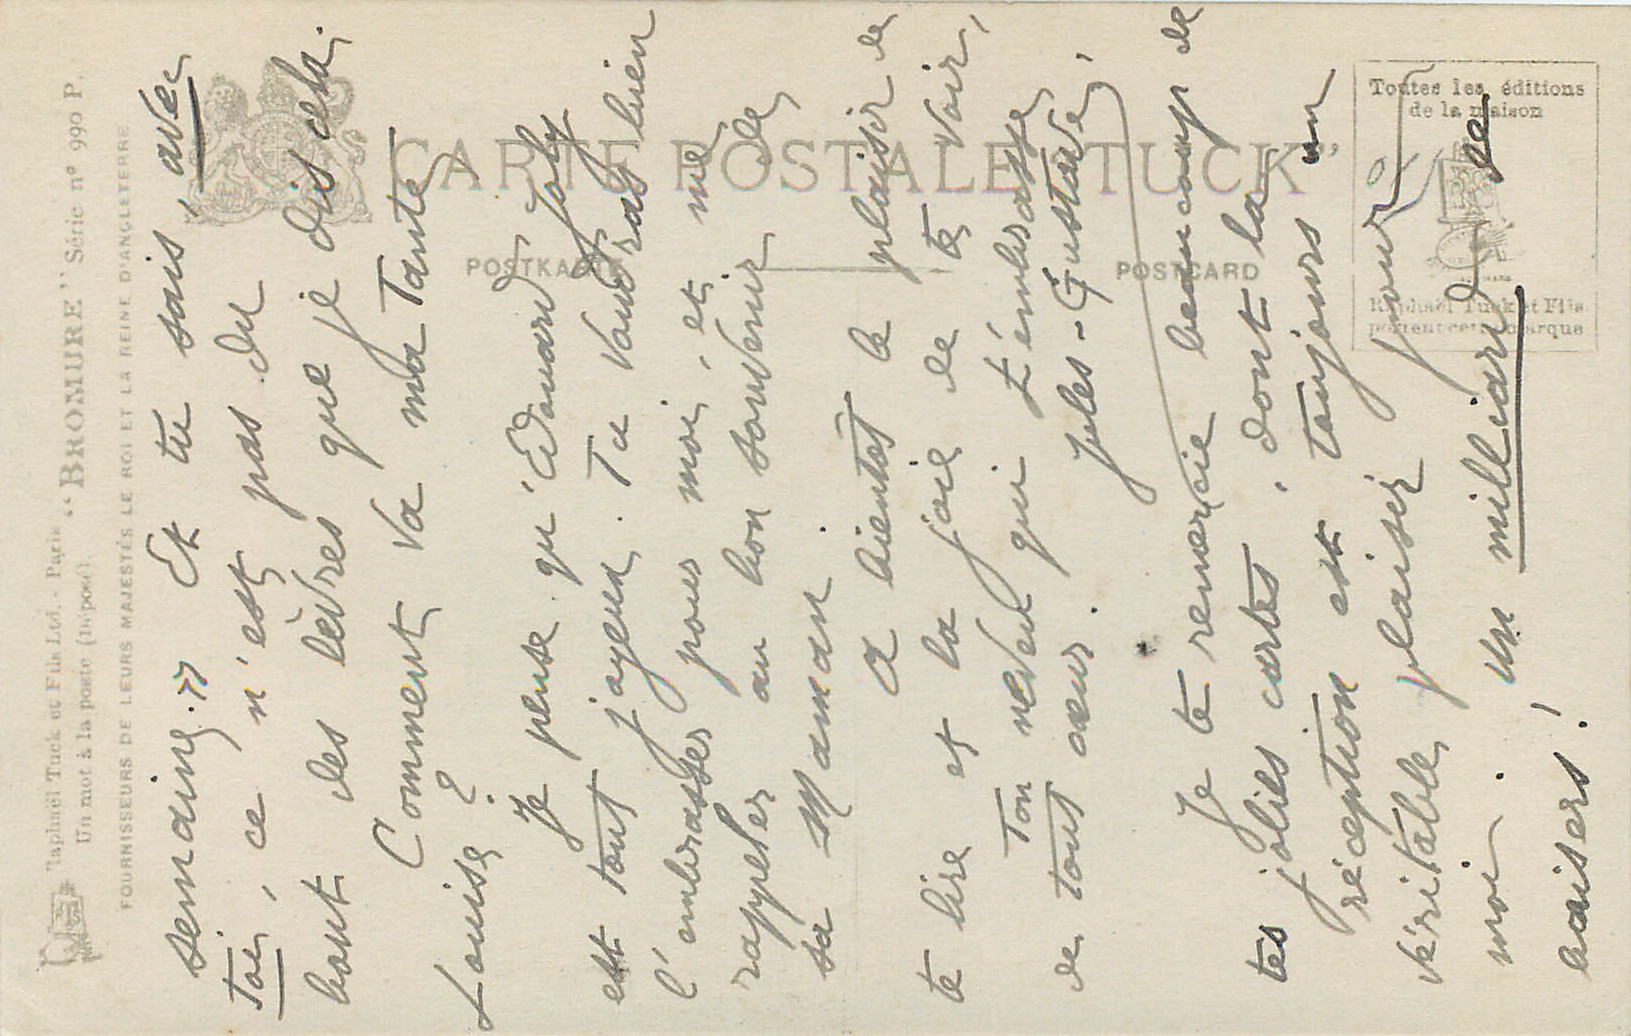 Raphaël Tuck et Fils Ltd. - Paris "BROMURE" Série nº 990 P.
Un mot à la poste (Déposé).
FOURNISSEURS DE LEURS MAJESTÉS LE ROI ET LA REINE D'ANGLETERRE
CARTE POSTALE "TUCK"
POSTKARTE
POSTCARD
Toutes les éditions
de la maison
Raphaël Tuck et Fils
portent cette marque
semaine." Et tu sais, avec
toi, ce n'est pas du
bout des lèvres que je dis cela.
Comment va ma Tante
Louise ?
Je pense qu'Edouard Joly
est tout joyeux. Tu voudras bien
l'embrasser pour moi, et me
rappeler au bon souvenir de
sa Maman.
A bientôt le plaisir de
te lire et la joie de te voir,
Ton neveu qui t'embrasse
de tout cœur. Jules-Gustave,
Je te remercie beaucoup de
tes jolies cartes, dont la
réception est toujours un
véritable plaisir pour
moi. Un milliard de
baisers!